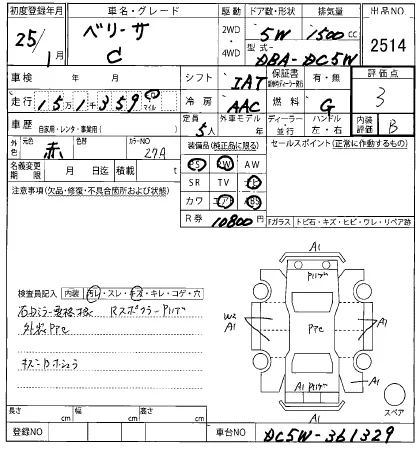 初度登録年月 車名・グレード 駆動 ドア数・形状 排気量 出品NO
25/1月 ベリーサ C 2WD・4WD 5W 1500cc 2514
型式 DBA-DC5W
車検 年 月 シフト IAT 保証書 有・無 評価点
走行 15万1千359 マイル 冷房 AAC 燃料 G 3
車歴 自家用・レンタ・事業用( ) 定員 5人 外車モデル 年 ディーラー・並行 ハンドル 左・右 内装評価 B
外色 元色 赤 色替 カラーNO 27A 装備品(純正品に限る) セールスポイント(正常に作動するもの)
名義変更期限 月 日迄 積載 t PS PW AW
注意事項(欠品・修復・不具合箇所および状態) SR TV ナビ
カワ エアB ABS
R券 10800円 Fガラス トビ石・キズ・ヒビ・ワレ・リペア跡
A1
検査員記入 内装 汚レ・スレ・キズ・キレ・コゲ・穴
W2 A1 A1
外装
A1
A1
スペア
長さ cm 幅 cm 高さ cm
登録NO 車台NO DC5W-361329